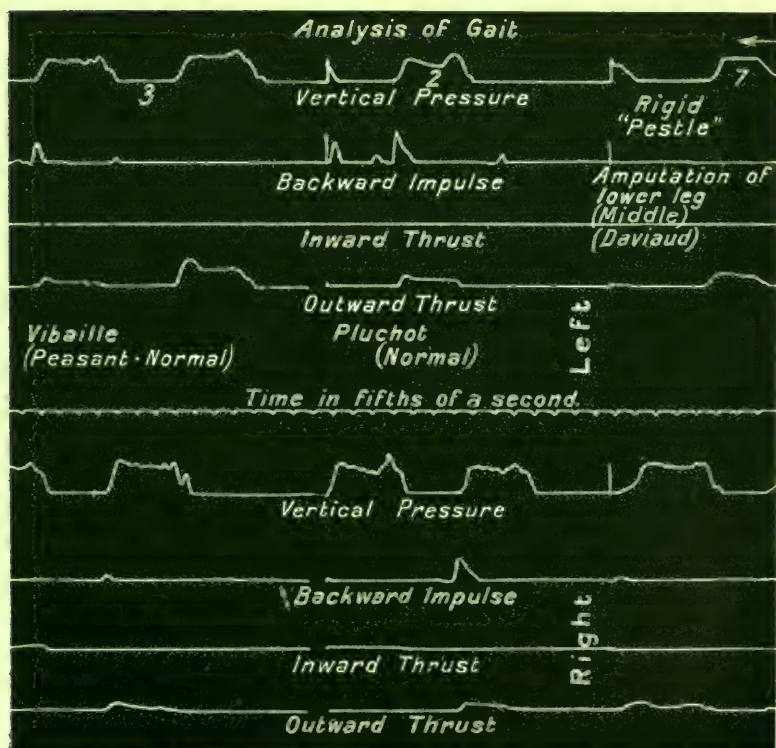 Analysis of Gait
3
2
7
Vertical Pressure
Rigid
"Pestle"
Backward Impulse
Amputation of
lower leg
(Middle)
(Daviaud)
Inward Thrust
Outward Thrust
Left
Vibaille
(Peasant-Normal)
Pluchot
(Normal)
Time in fifths of a second.
Vertical Pressure
Backward Impulse
Right
Inward Thrust
Outward Thrust